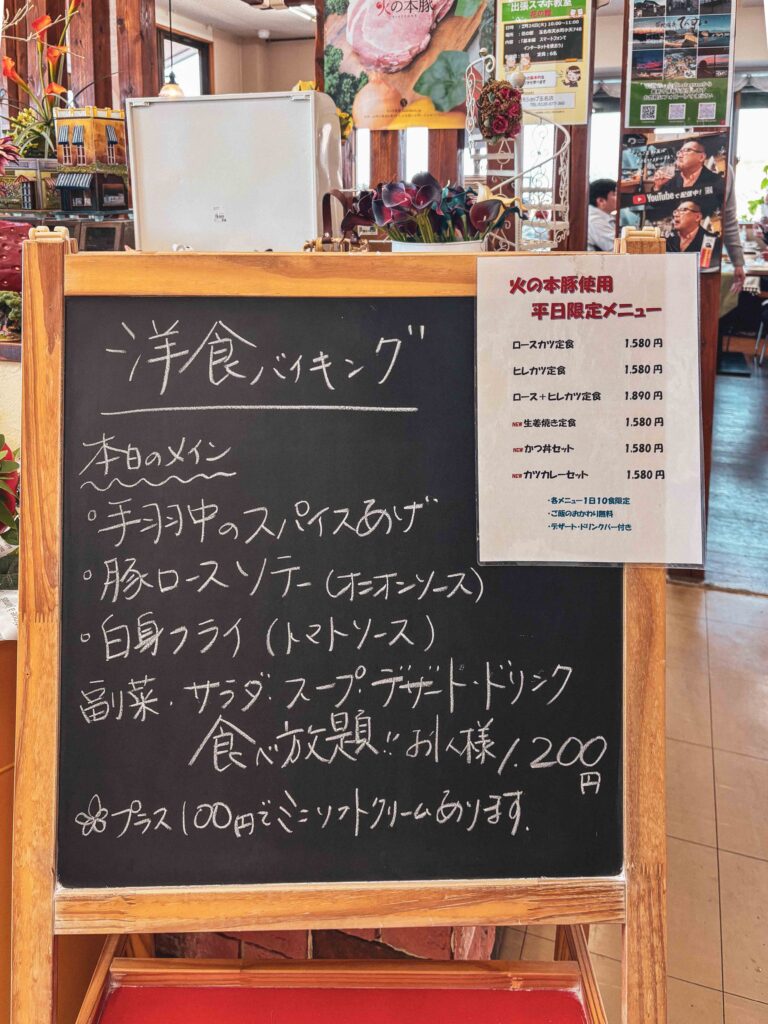 火の本豚
出張スマホ教室
YouTubeで配信中!
洋食バイキング
本日のメイン
°手羽中のスパイスあげ
°豚ロースソテー(オニオンソース)
°白身フライ(トマトソース)
副菜・サラダ・スープ・デザート・ドリンク
食べ放題!! お1人様 1.200円
プラス100円でミニソフトクリームあります.
火の本豚使用
平日限定メニュー
ロースカツ定食 1.580円
ヒレカツ定食 1.580円
ロース+ヒレカツ定食 1.890円
NEW 生姜焼き定食 1.580円
NEW かつ丼セット 1.580円
NEW カツカレーセット 1.580円
・各メニュー1日10食限定
・ご飯のおかわり無料
・デザート・ドリンクバー付き